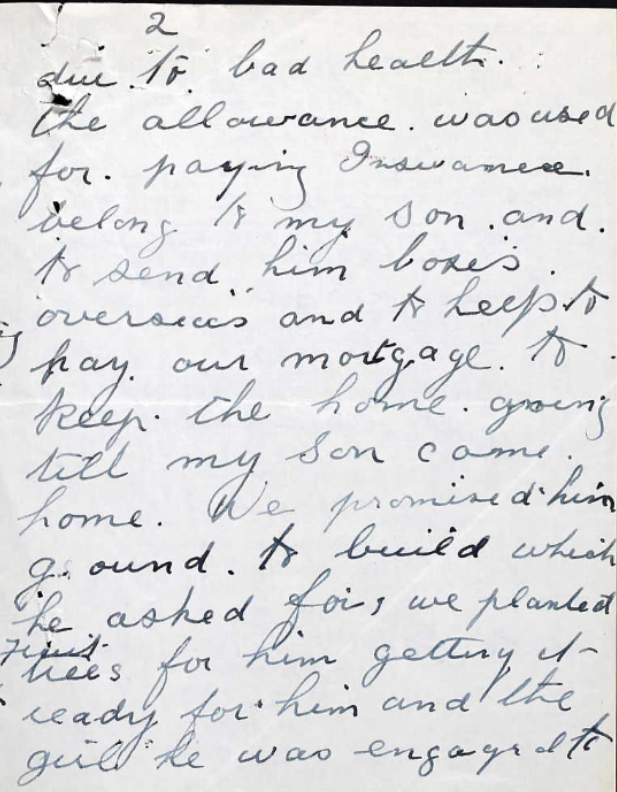 2
due. to. bad health.
the allowance. was used
for. paying Insurance.
belong to my son. and.
to send him boxes.
overseas and to help to
pay. our mortgage. to
keep. the home. going
till my son came.
home. We promised him
ground. to build which
he asked for, we planted
Fruit
trees for him getting it
ready for him and the
girl he was engaged to